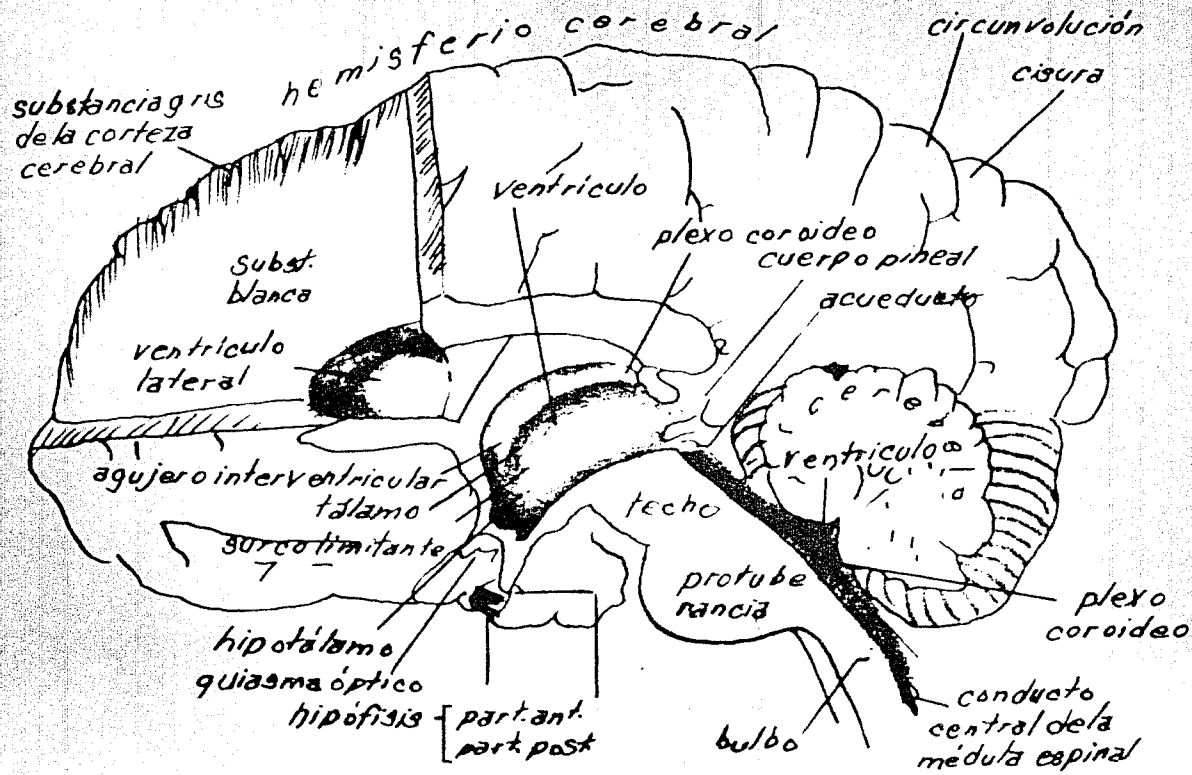 hemisferio cerebral
circunvolución
cisura
substancia gris
de la corteza
cerebral
ventrículo
plexo coroideo
cuerpo pineal
acueducto
subst.
blanca
ventrículo
lateral
cerebelo
ventrículo
agujero interventricular
tálamo
surco limitante
techo
protube
rancia
plexo
coroideo
hipotálamo
quiasma óptico
hipófisis
part. ant.
part. post
bulbo
conducto
central de la
médula espinal